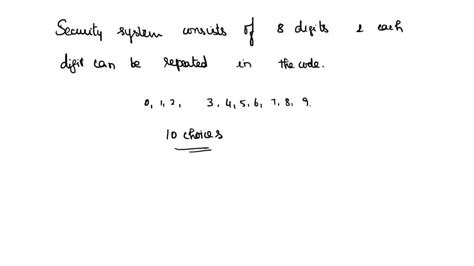 Security system consists of 8 digits & each
digit can be repeated in the code.
0, 1, 2, 3, 4, 5, 6, 7, 8, 9.
10 choices